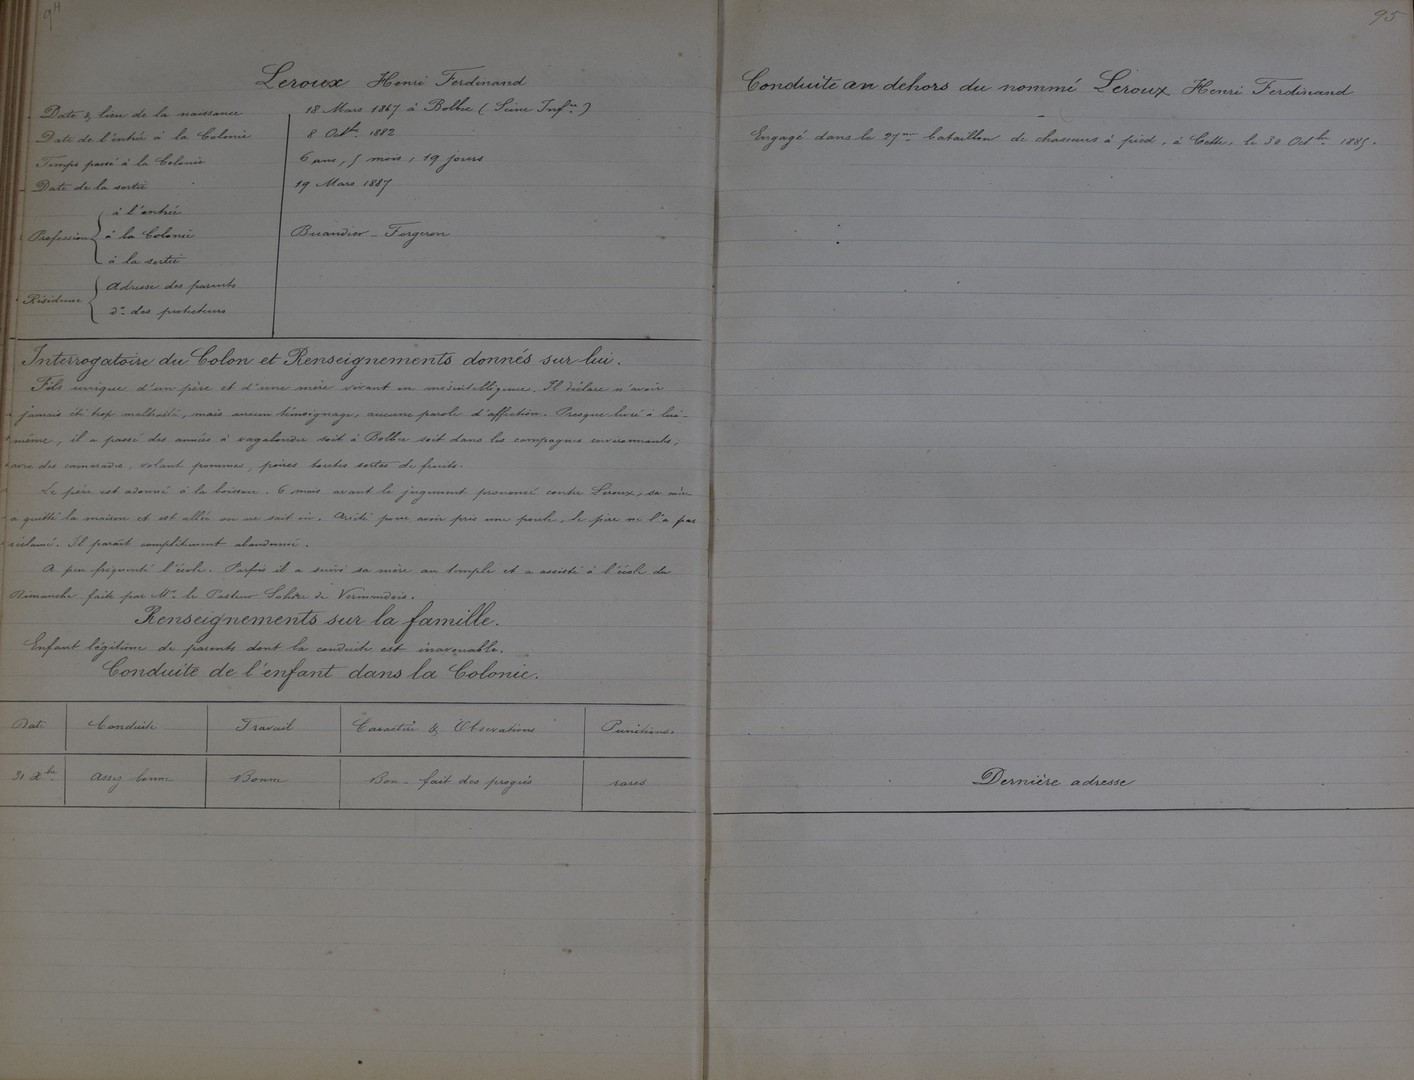 94
Leroux Henri Ferdinand
Date & lieu de la naissance 18 Mars 1867 à Bolbec (Seine Infre)
Date de l'entrée à la Colonie 8 Oct. 1882
Temps passé à la Colonie 6 ans, 5 mois, 19 jours
Date de la sortie 19 Mars 1887
à l'entrée
Profession à la Colonie Buandier - Forgeron
à la sortie
adresse des parents
Résidence
do des protecteurs
Interrogatoire du Colon et Renseignements donnés sur lui.
Fils unique d'un père et d'une mère vivant en mésintelligence. Il déclare n'avoir
jamais été trop maltraité, mais aucun témoignage, aucune parole d'affection. Presque livré à lui-
même, il a passé des années à vagabonder soit à Bolbec soit dans les campagnes environnantes,
avec des camarades, volant pommes, poires toutes sortes de fruits.
Le père est adonné à la boisson. 6 mois avant le jugement prononcé contre Leroux, sa mère
a quitté la maison et est allée on ne sait où. Arrêté pour avoir pris une poule, le père ne l'a pas
réclamé. Il paraît complètement abandonné.
A peu fréquenté l'école. Parfois il a suivi sa mère au temple et a assisté à l'école du
Dimanche faite par Mr. le Pasteur de Vermandois.
Renseignements sur la famille.
Enfant légitime de parents dont la conduite est inavouable.
Conduite de l'enfant dans la Colonie.
Date Conduite Travail Caractère & Observations Punitions.
31 Xbre Assez bonne Bonne Bon - fait des progrès rares
95
Conduite au dehors du nommé Leroux Henri Ferdinand
Engagé dans le 27me bataillon de chasseurs à pied, à Cette, le 30 Octbre 1885.
Dernière adresse